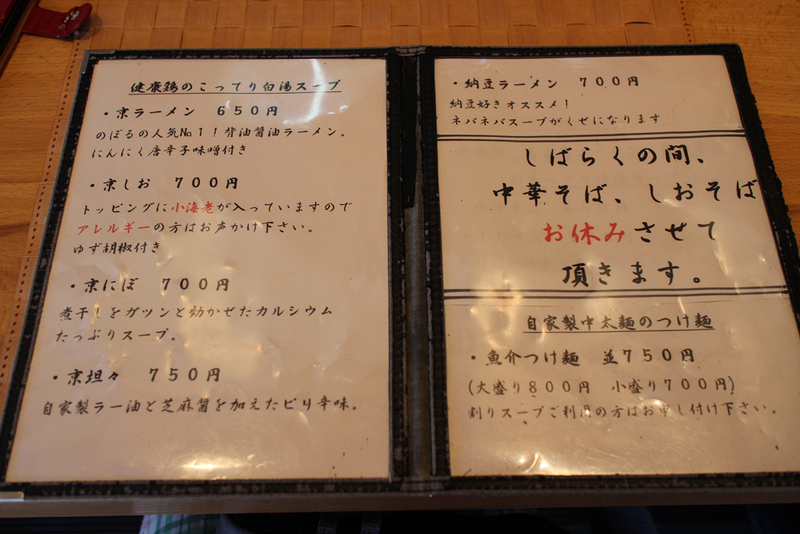 健康鶏のこってり白湯スープ
・京ラーメン 650円
のぼるの人気No.1！背油醤油ラーメン。
にんにく唐辛子味噌付き
・京しお 700円
トッピングに小海老が入っていますので
アレルギーの方はお声かけ下さい。
ゆず胡椒付き
・京にぼ 700円
煮干しをガツンと効かせたカルシウム
たっぷりスープ。
・京坦々 750円
自家製ラー油と芝麻醤を加えたピリ辛味。
・納豆ラーメン 700円
納豆好きオススメ！
ネバネバスープがくせになります
しばらくの間、
中華そば、しおそば
お休みさせて
頂きます。
自家製中太麺のつけ麺
・魚介つけ麺 並750円
(大盛り800円 小盛り700円)
割りスープご利用の方はお申し付け下さい。